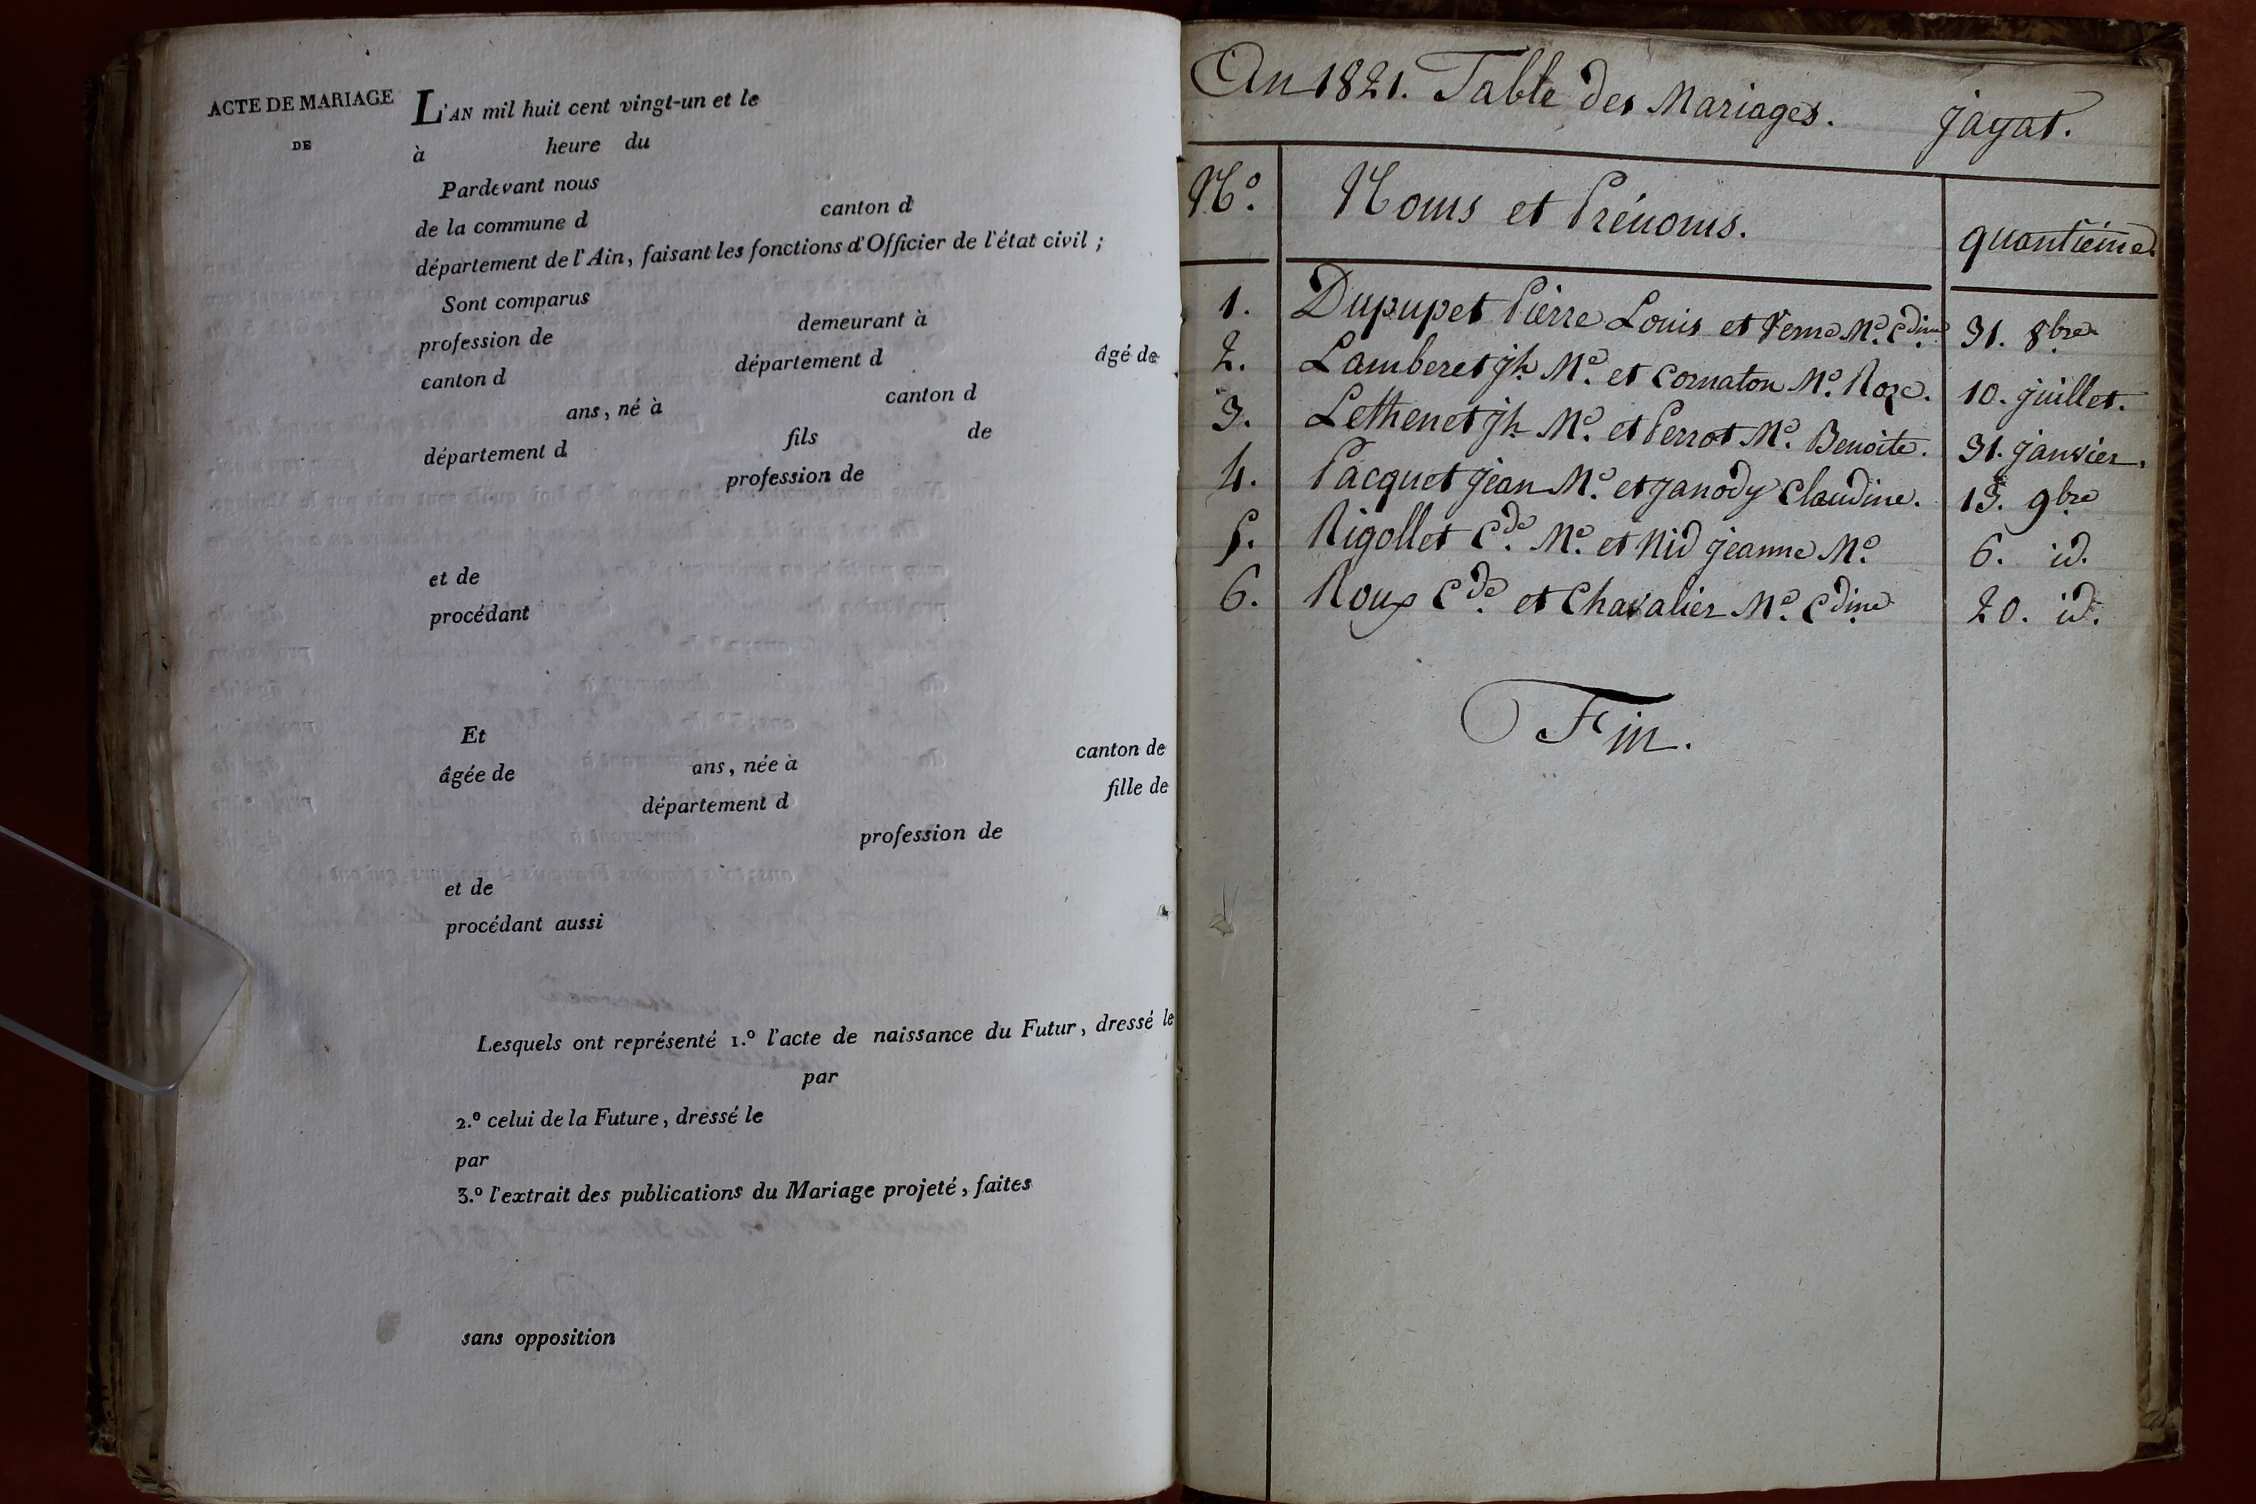 ACTE DE MARIAGE
DE
L'AN mil huit cent vingt-un et le
à heure du
Pardevant nous
de la commune d canton d
département de l'Ain, faisant les fonctions d'Officier de l'état civil ;
Sont comparus
profession de demeurant à
canton d département d âgé de
ans, né à canton d
département d fils de
profession de
et de
procédant
Et
âgée de ans, née à canton de
département d fille de
profession de
et de
procédant aussi
Lesquels ont représenté 1.º l'acte de naissance du Futur, dressé le
par
2.º celui de la Future, dressé le
par
3.º l'extrait des publications du Mariage projeté, faites
sans opposition
An 1821. Table des Mariages. jayat.
Nº. Noms et Prénoms. quantième
1. Dupupet Pierre Louis et Verne Me. Cdine 31. 8bre
2. Lamberet jh. Me. et Cornaton Me. Roze. 10. juillet.
3. Lethenet jh. Me. et Perrot Me. Benoite. 31. janvier.
4. Pacquet jean Me. et janody Claudine. 13. 9bre
5. Rigollet Cde. Me. et Nid jeanne Me. 6. id.
6. Roux Cde. et Chavalier Me. Cdine 20. id.
Fin.